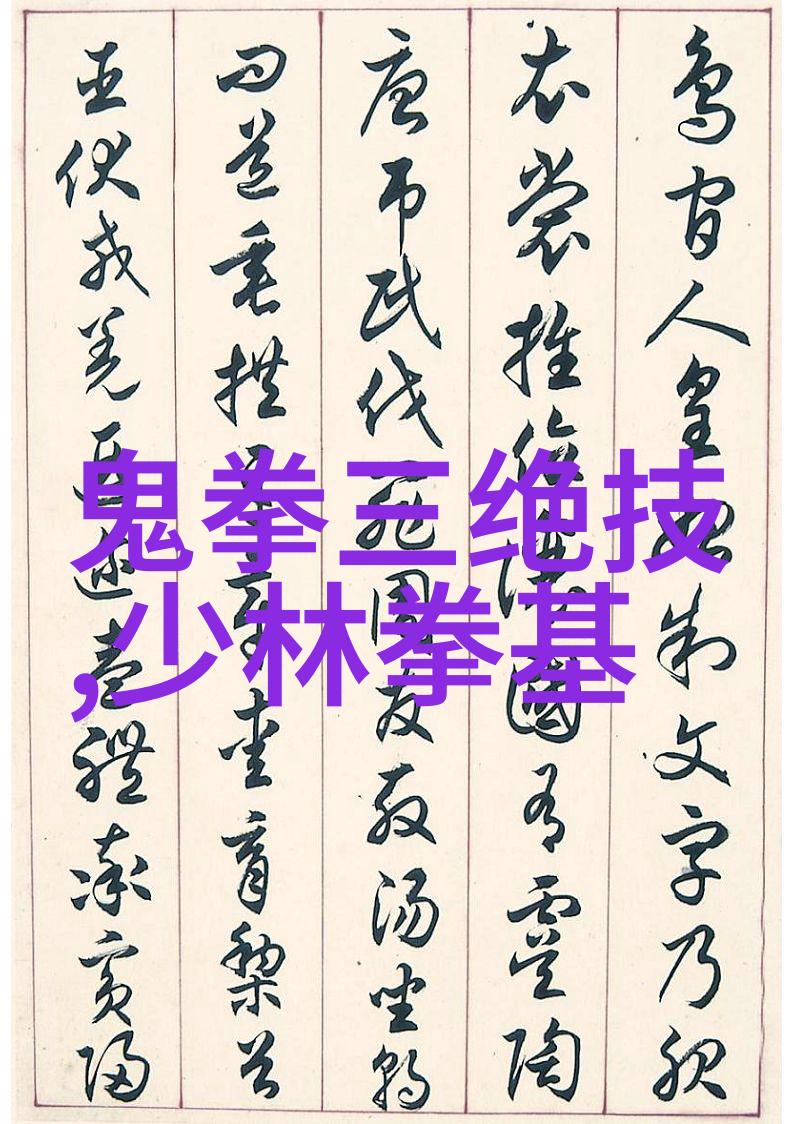 鳥官人皇始制文字乃服
衣裳推位讓國有虞陶
唐吊民伐罪周發殷湯坐朝
問道垂拱平章愛育黎首
臣伏戎羌遐邇壹體率賓歸
鬼拳三绝技
,少林拳基